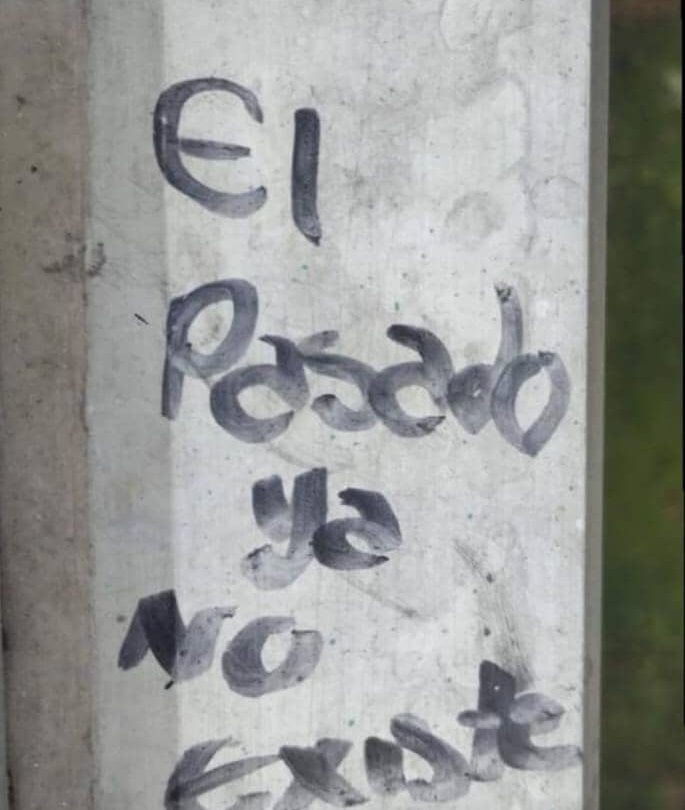 El
Pasado
ya
NO
Existe